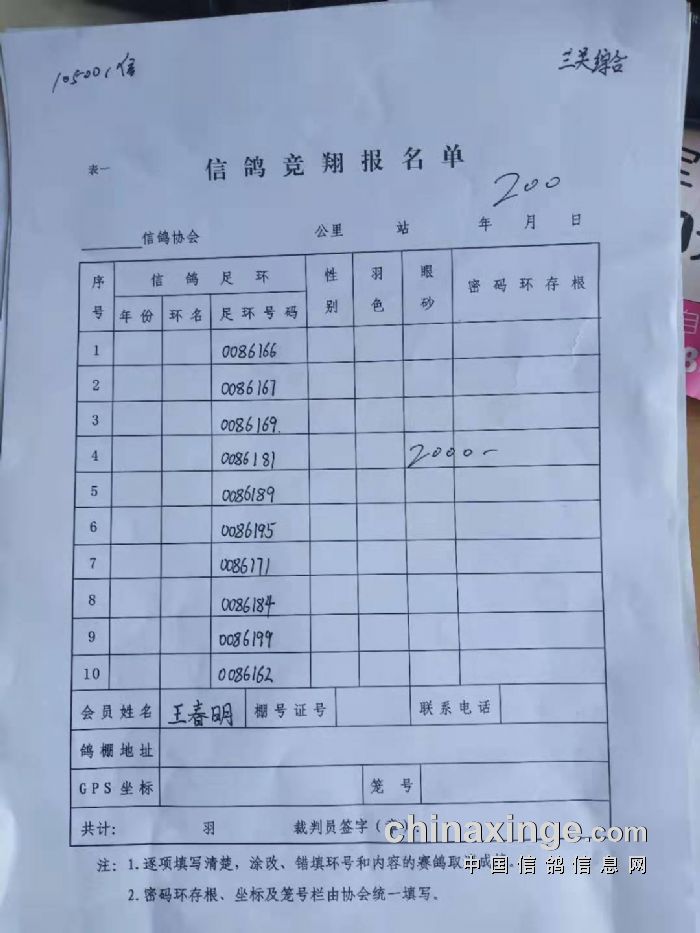 10500，信
三关综合
表一 信鸽竞翔报名单
200
______信鸽协会 公里 站 年 月 日
序号 信鸽足环 性别 羽色 眼砂 密码环存根
年份 环名 足环号码
1 0086166
2 0086167
3 0086169
4 0086181 2000-
5 0086189
6 0086195
7 0086171
8 0086184
9 0086199
10 0086162
会员姓名 王春明 棚号证号 联系电话
鸽棚地址
GPS坐标 笼号
共计： 羽 裁判员签字（
chinaxinge.com
注：1.逐项填写清楚，涂改、错填环号和内容的赛鸽取
中国信鸽信息网
2.密码环存根、坐标及笼号栏由协会统一填写。